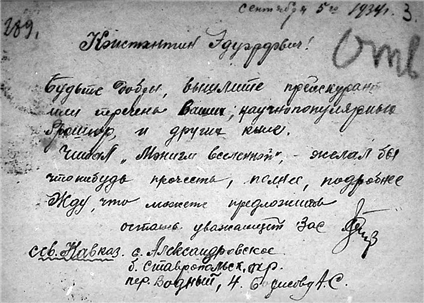 сентября 5го 1934г. 3.
289.
Константин Эдуардович!
Отв
Будьте добры, вышлите прейскурант
или перечень Ваших, научнопопулярных
брошюр, и других книг.
Читал „Монизм вселенной", - желал бы
что нибудь прочесть, полнее, подробнее
Жду, что можете предложить
остаюсь уважающий Вас
Сев. Кавказ. с. Александровское
б. Ставропольск, окр.
пер. Водный, 4. А.С.